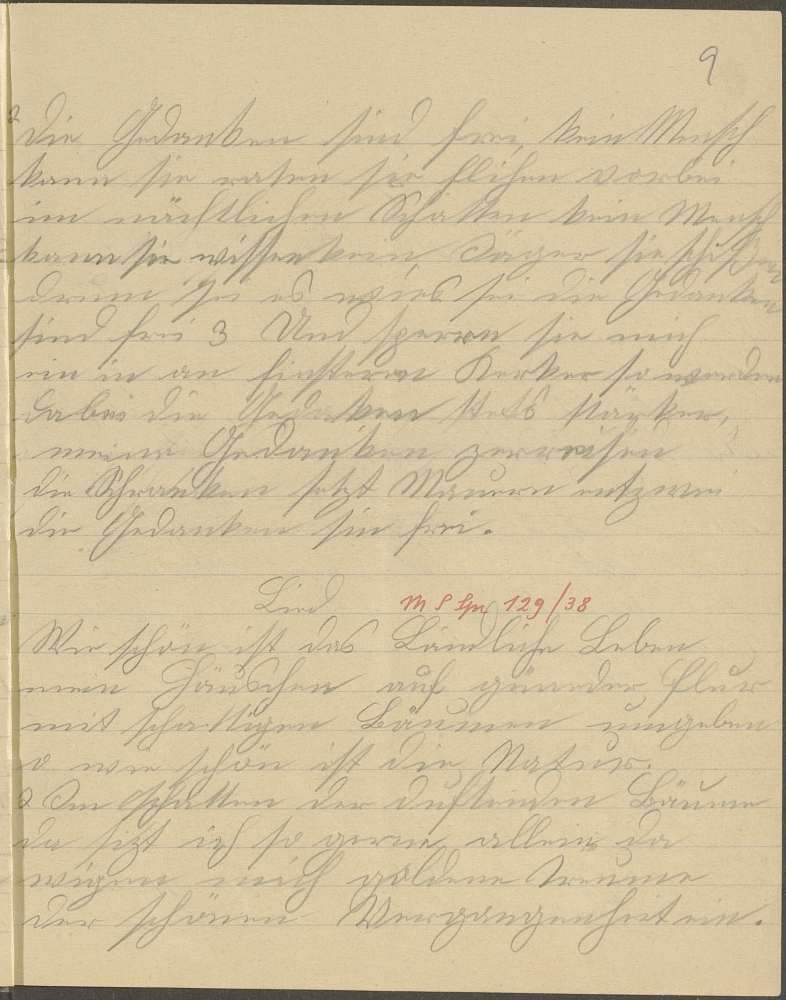 9
2 Die Gedanken sind frei, kein Mensch
kann sie raten sie flihen vorbei
im nächtlichen Schatten kein Mensch
kann sie wissen kein Jäger sie schißen
drum sei es wies sei die Gedanken
sind frei 3 Und sperren sie mich
ein in an finsteren Kerker so werden
dabei die Gedaken stets stärker,
meine Gedanken zerreisen
die Schranken setzt Mauern entzwei
die Gedanken sin frei.
Lied
129/38
Wie schön ist das Ländliche Leben
mein Häuschen auf grünender Flur
mit schattigen Bäumen umgeben
o wie schön ist die Natur.
2 Im schatten der duftenden Bäume
da sizt ich so gerne allein da
wigen mich goldene Treume
der schönen Vergangenheit ein.